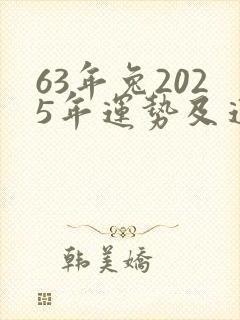 63年兔202
5年運勢及運
韩美嬌